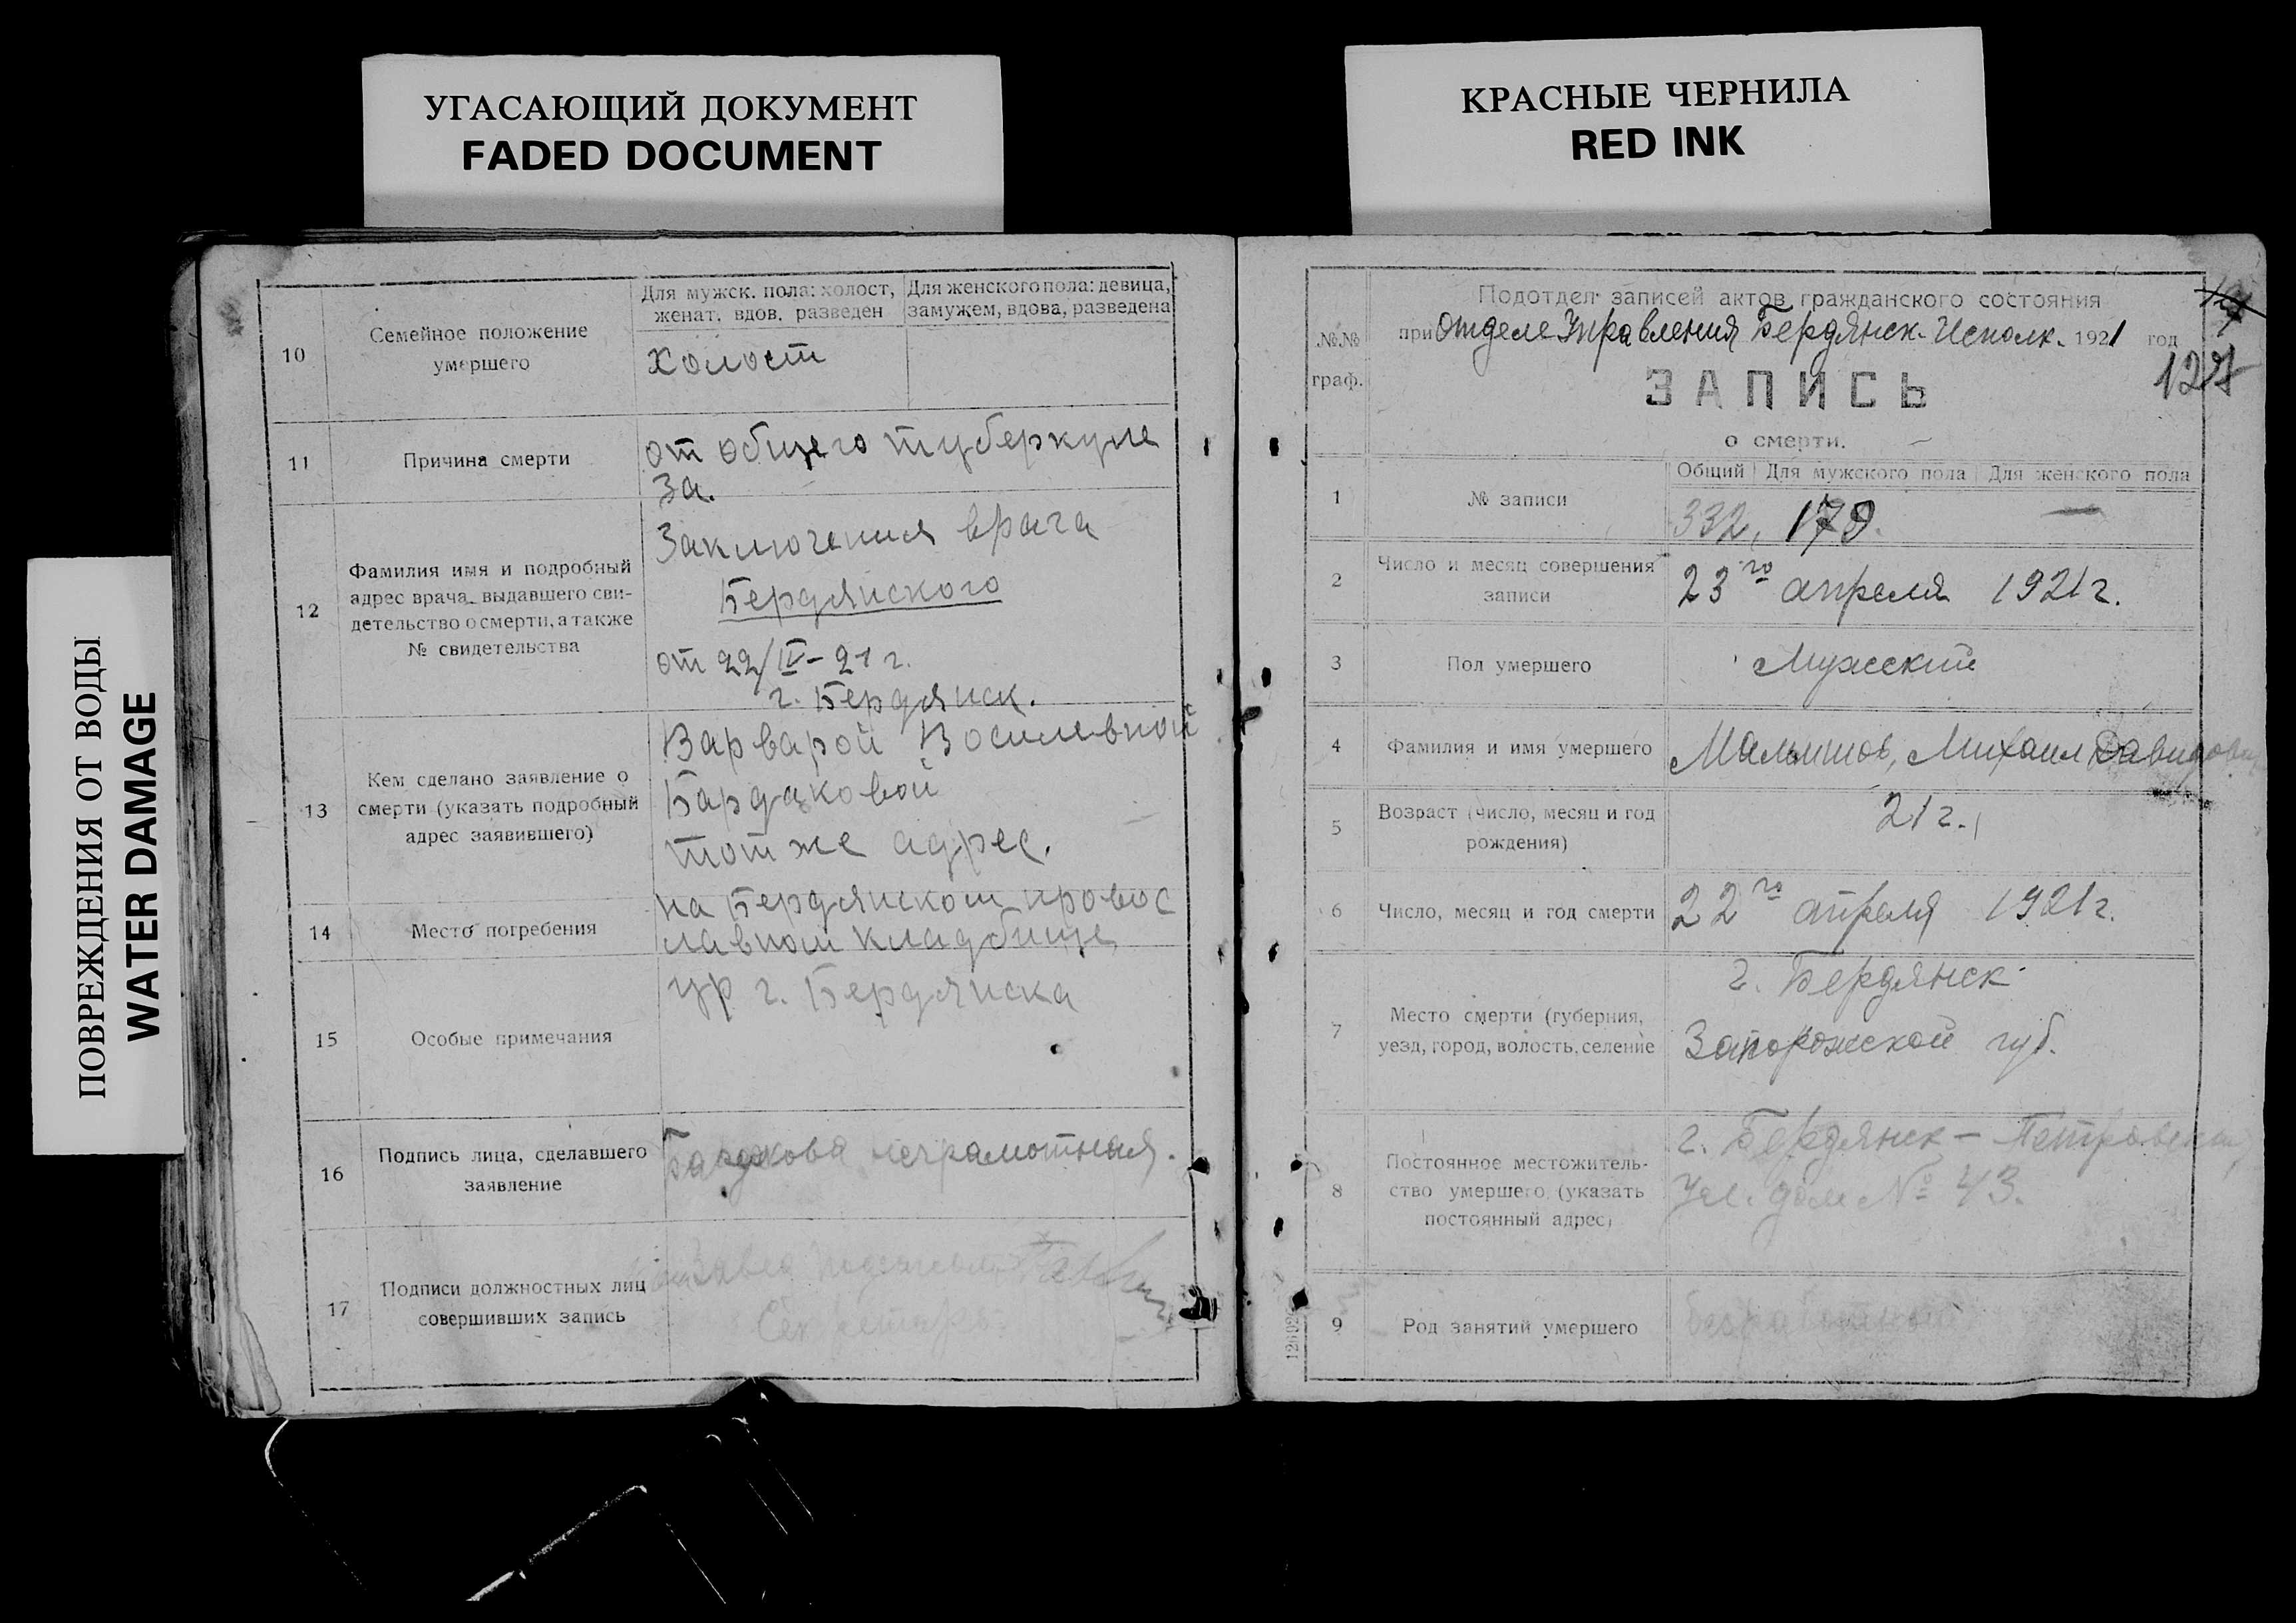 УГАСАЮЩИЙ ДОКУМЕНТ
FADED DOCUMENT
КРАСНЫЕ ЧЕРНИЛА
RED INK
ПОВРЕЖДЕНИЯ ОТ ВОДЫ
WATER DAMAGE
10
Семейное положение
умершего
Для мужск. пола: холост,
женат, вдов, разведен
Для женского пола: девица,
замужем, вдова, разведена
холост
11
Причина смерти
от общего туберкуле
за.
12
Фамилия имя и подробный
адрес врача, выдавшего сви-
детельство о смерти, а также
№ свидетельства
Заключения врача
Бердянского
от 22/IV-21 г.
г. Бердянск.
13
Кем сделано заявление о
смерти (указать подробный
адрес заявившего)
Варварой Василевной
Бардаковой
тот же адрес.
14
Место погребения
на Бердянском правос
лавном кладбище
15
Особые примечания
ур г. Бердянска
16
Подпись лица, сделавшего
заявление
Бардакова неграмотная.
17
Подписи должностных лиц
совершивших запись
Секретарь
№№
граф.
Подотдел записей актов гражданского состояния
при Отделе Управления Бердянск. Исполк. 1921 год
127
ЗАПИСЬ
о смерти.
1
№ записи
Общий
Для мужского пола
Для женского пола
332, 179. —
2
Число и месяц совершения
записи
23го апреля 1921 г.
3
Пол умершего
Мужский
4
Фамилия и имя умершего
Малышов, Михаил Давидович
5
Возраст (число, месяц и год
рождения)
21 г.
6
Число, месяц и год смерти
22го апреля 1921 г.
7
Место смерти (губерния,
уезд, город, волость, селение
г. Бердянск
Запорожской губ.
8
Постоянное местожитель-
ство умершего (указать
постоянный адрес)
г. Бердянск – Петровская
ул. дом № 43.
9
Род занятий умершего
безработный